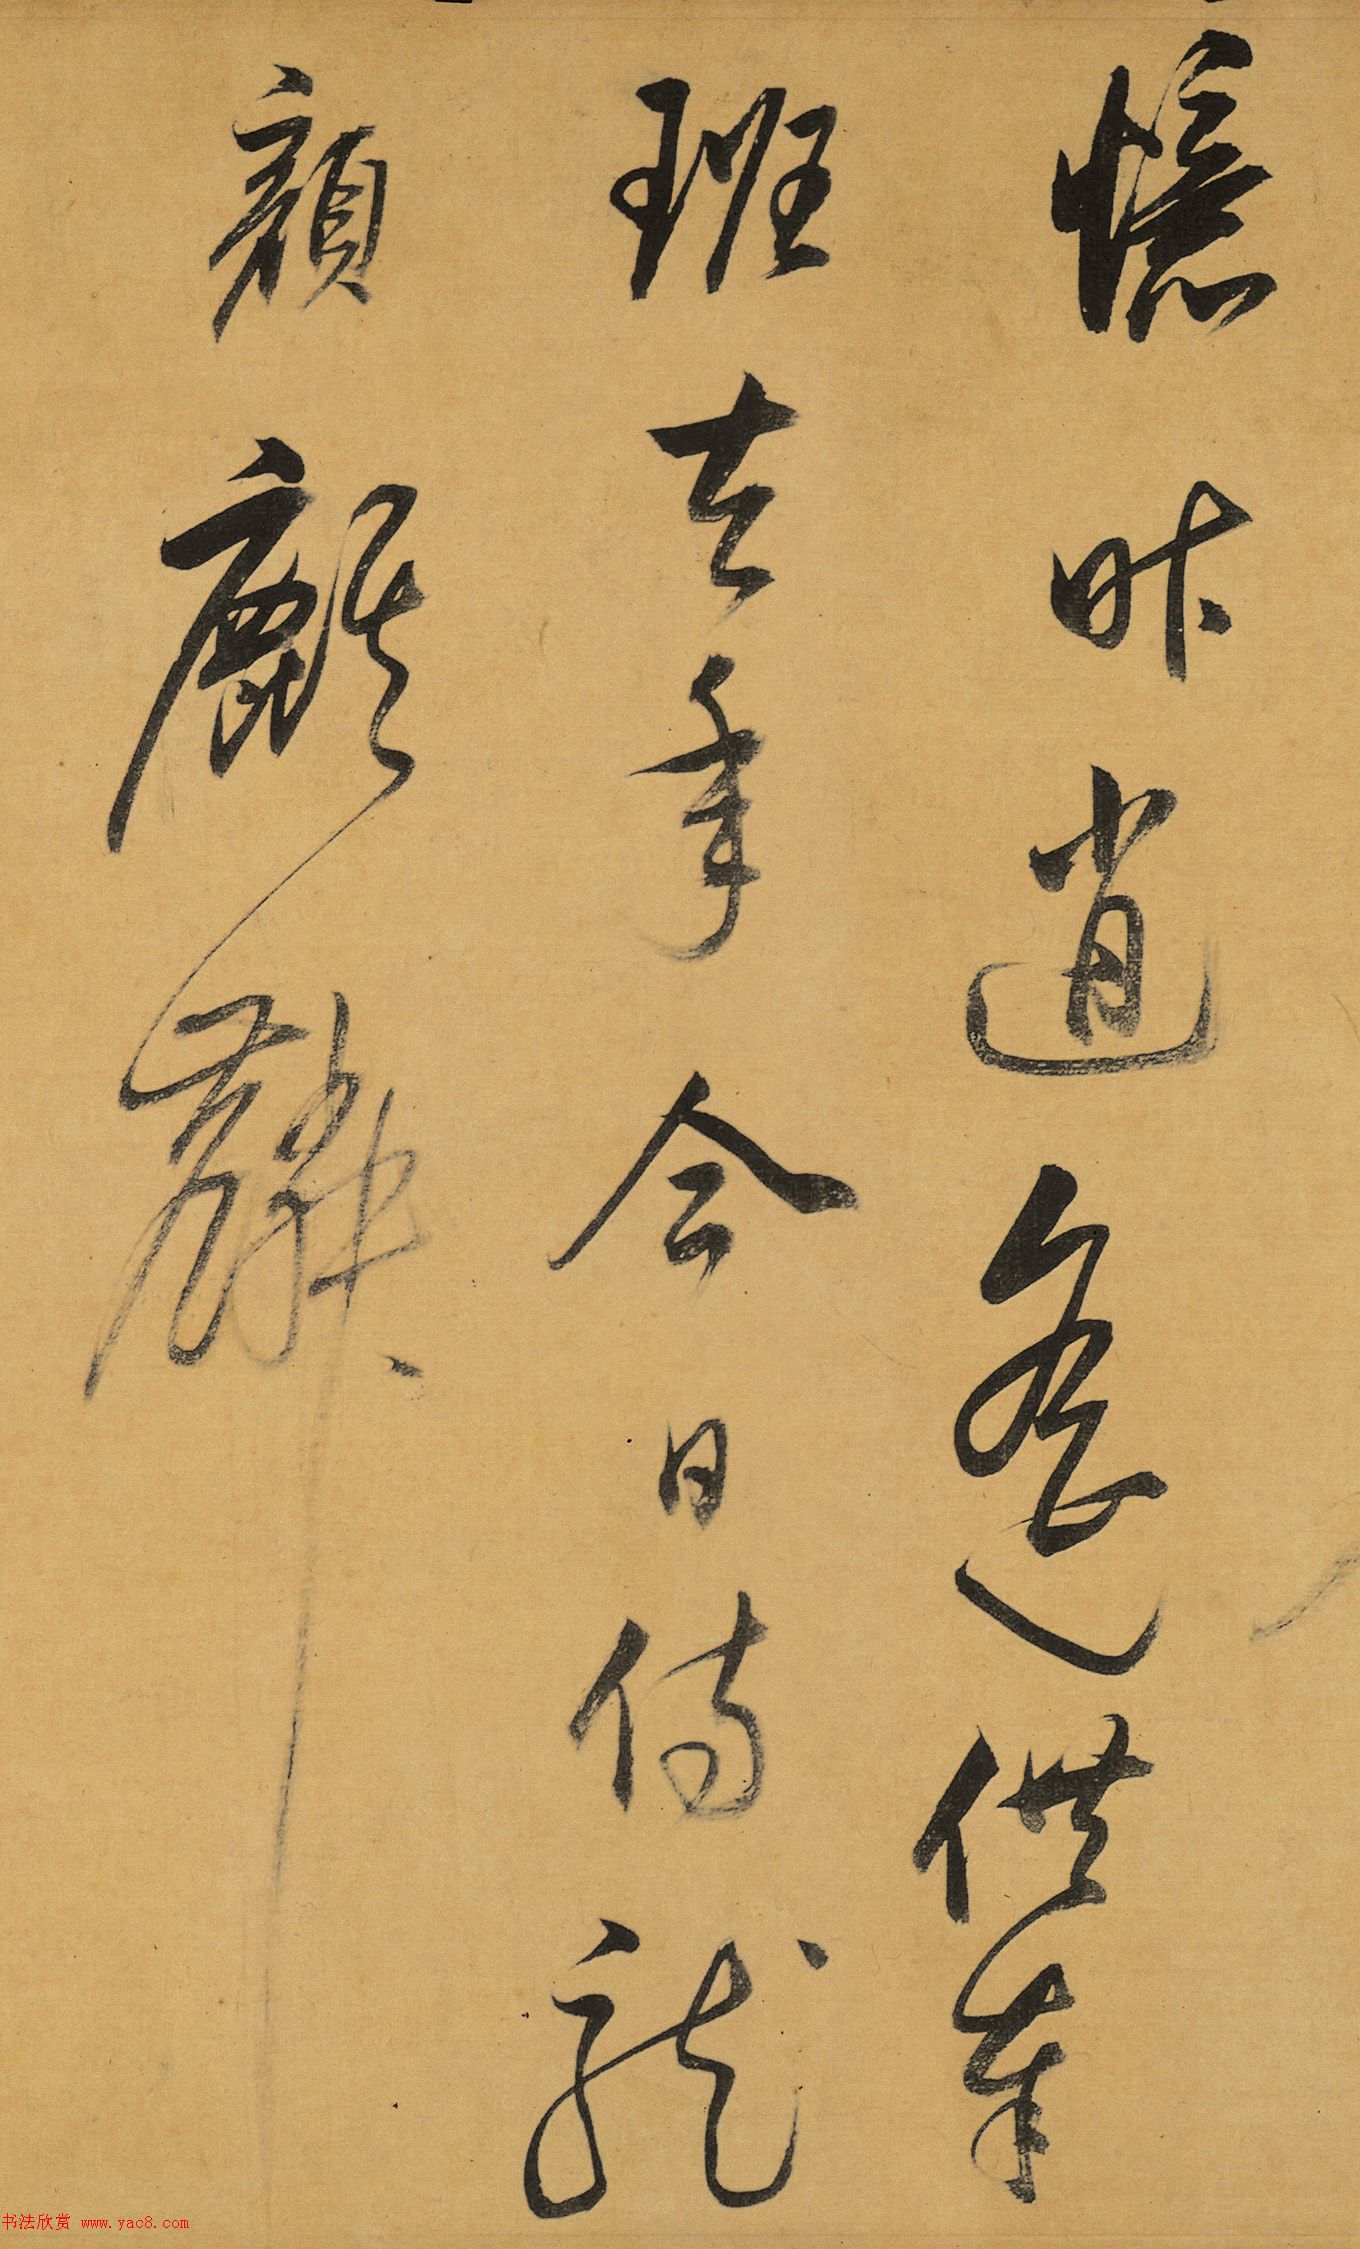 憶昨逍遙供奉
班去年今日侍龍
顏麒麟
书法欣赏 www.yac8.com